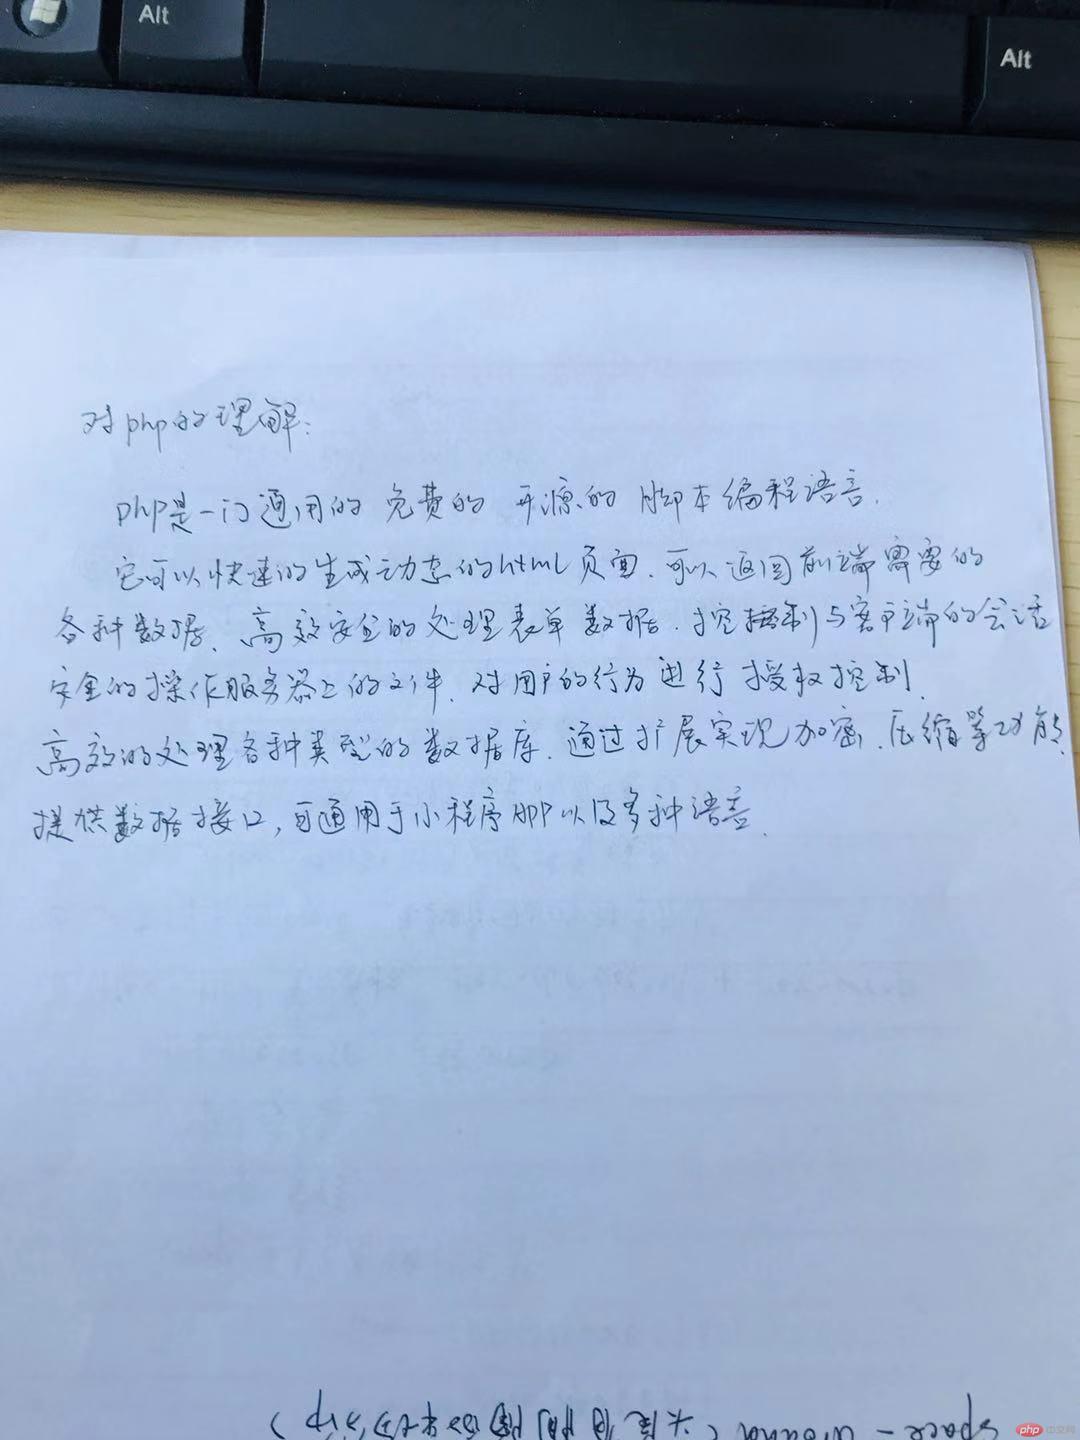 Alt
Alt
对php的理解:
php是一门通用的 免费的 开源的 脚本编程语言.
它可以快速的生成动态的html页面. 可以返回前端需要的
各种数据、高效安全的处理表单数据. 控制与客户端的会话
安全的操作服务器上的文件. 对用户的行为进行授权控制.
高效的处理各种类型的数据库. 通过扩展实现加密. 压缩等功能.
提供数据接口, 可通用于小程序APP以及多种语言.
space-around (
php 中文网